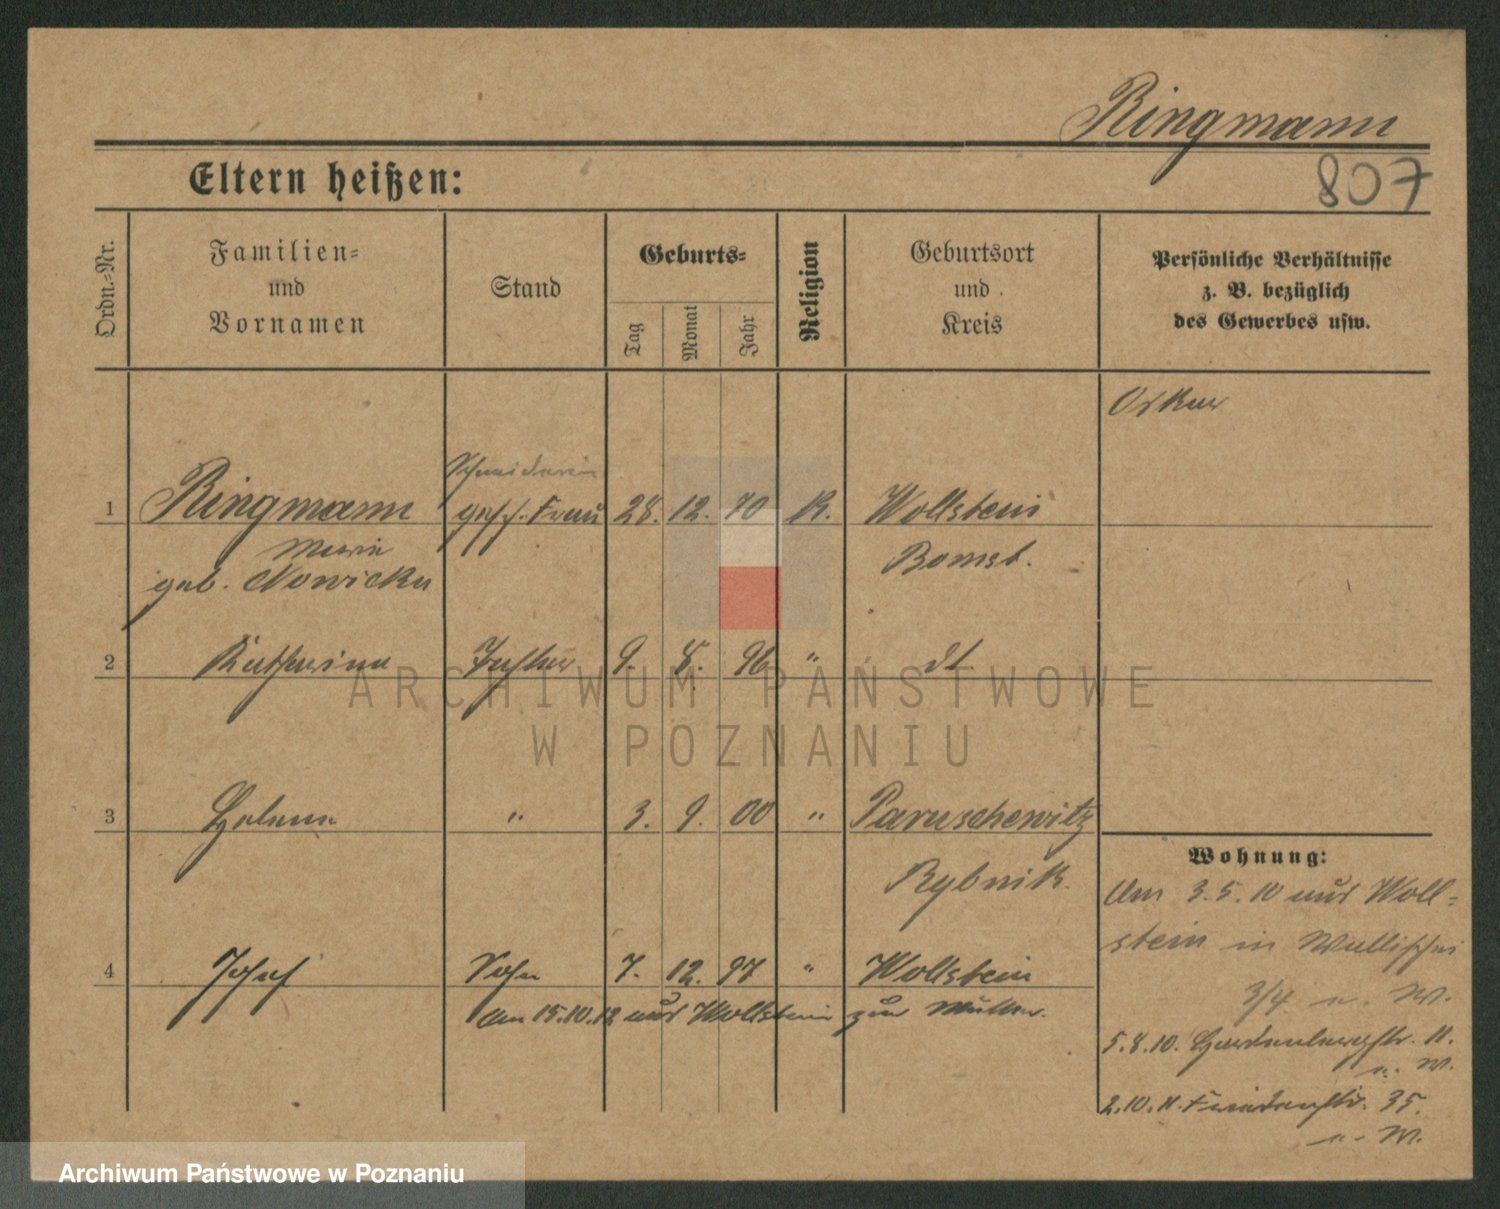 Ringmann
Eltern heißen:
807
Ordn.-Nr.
Familien-
und
Vornamen
Stand
Geburts-
Tag
Monat
Jahr
Religion
Geburtsort
und
Kreis
Persönliche Verhältnisse
z. B. bezüglich
des Gewerbes usw.
Schneiderin
1 Ringmann gesch. Frau 28. 12. 70 K. Wollstein
Maria
geb. Nowicka
Bomst.
2 Katharina Tochter 9. 8. 96 " dt.
3 Helena " 3. 9. 00 " Paruschewitz
Rybnik.
4 Josef Sohn 7. 12. 97 " Wollstein
Am 15.10.12 aus Wollstein zur Mutter.
Wohnung:
Am 3.5.10 aus Woll=
stein in Wallischei
3/4 u. W.
5.8.10. Hardenbergstr. 11.
u. W.
2.10.11. Friedenstr. 35.
u. W.
ARCHIWUM PAŃSTWOWE
W POZNANIU
Archiwum Państwowe w Poznaniu